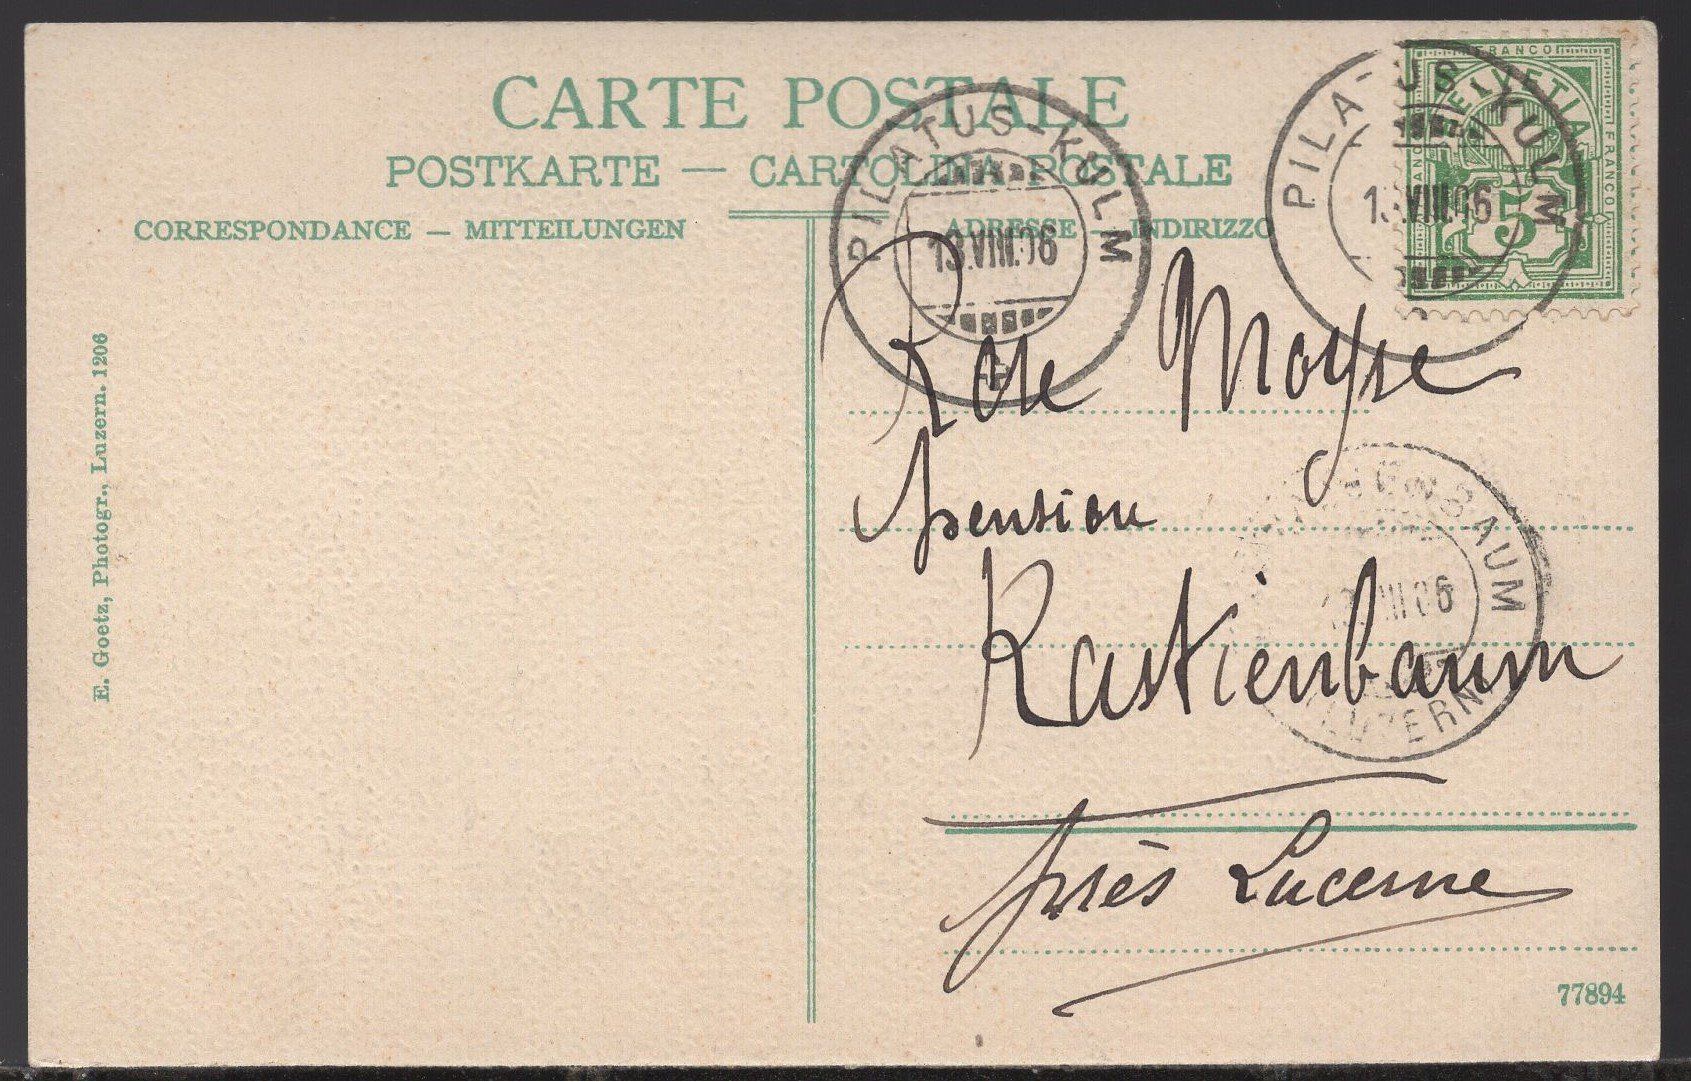 CARTE POSTALE
POSTKARTE — CARTOLINA POSTALE
CORRESPONDANCE — MITTEILUNGEN
ADRESSE — INDIRIZZO
E. Goetz, Photogr., Luzern. 1206
PILATUS-KULM
13.VIII.06
PILATUS-KULM
13.VIII.06
FRANCO
HELVETIA
FRANCO
5
Rose Moyse
pension
Kastienbaum
près Lucerne
BAUM
III 06
LUZERN
77894